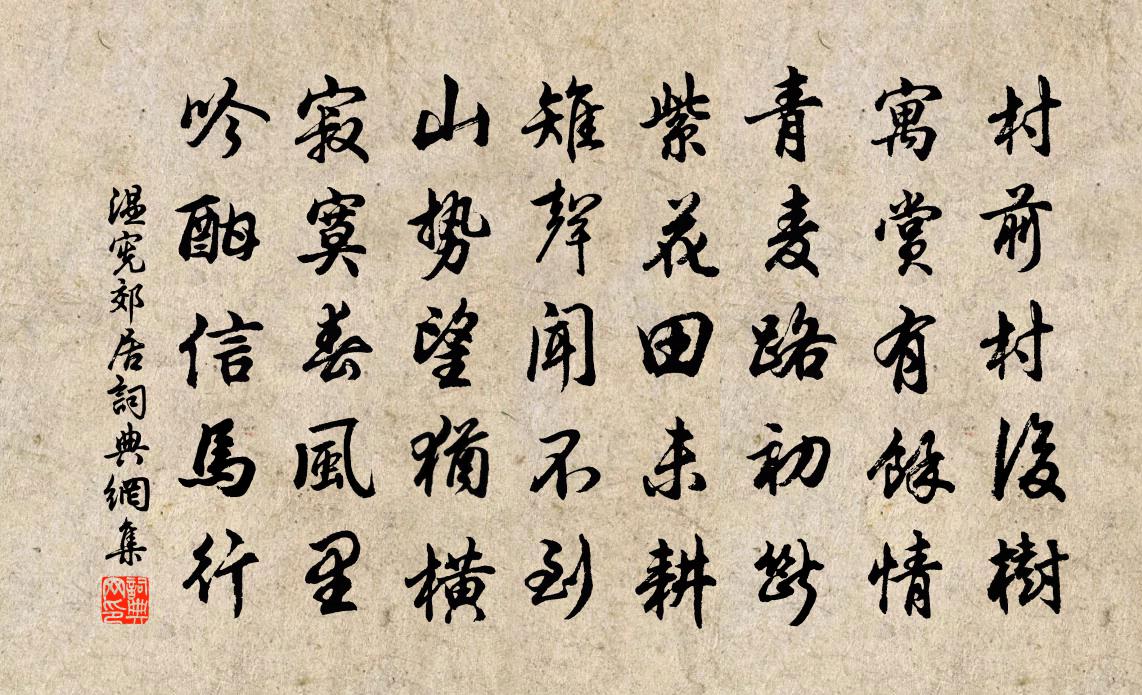 村前村後樹
寓賞有餘情
青麦路初斷
紫花田未耕
雉聲聞不到
山勢望猶橫
寂寞春風里
吟酣信馬行
温憲郊居詞典網集
詞典网印